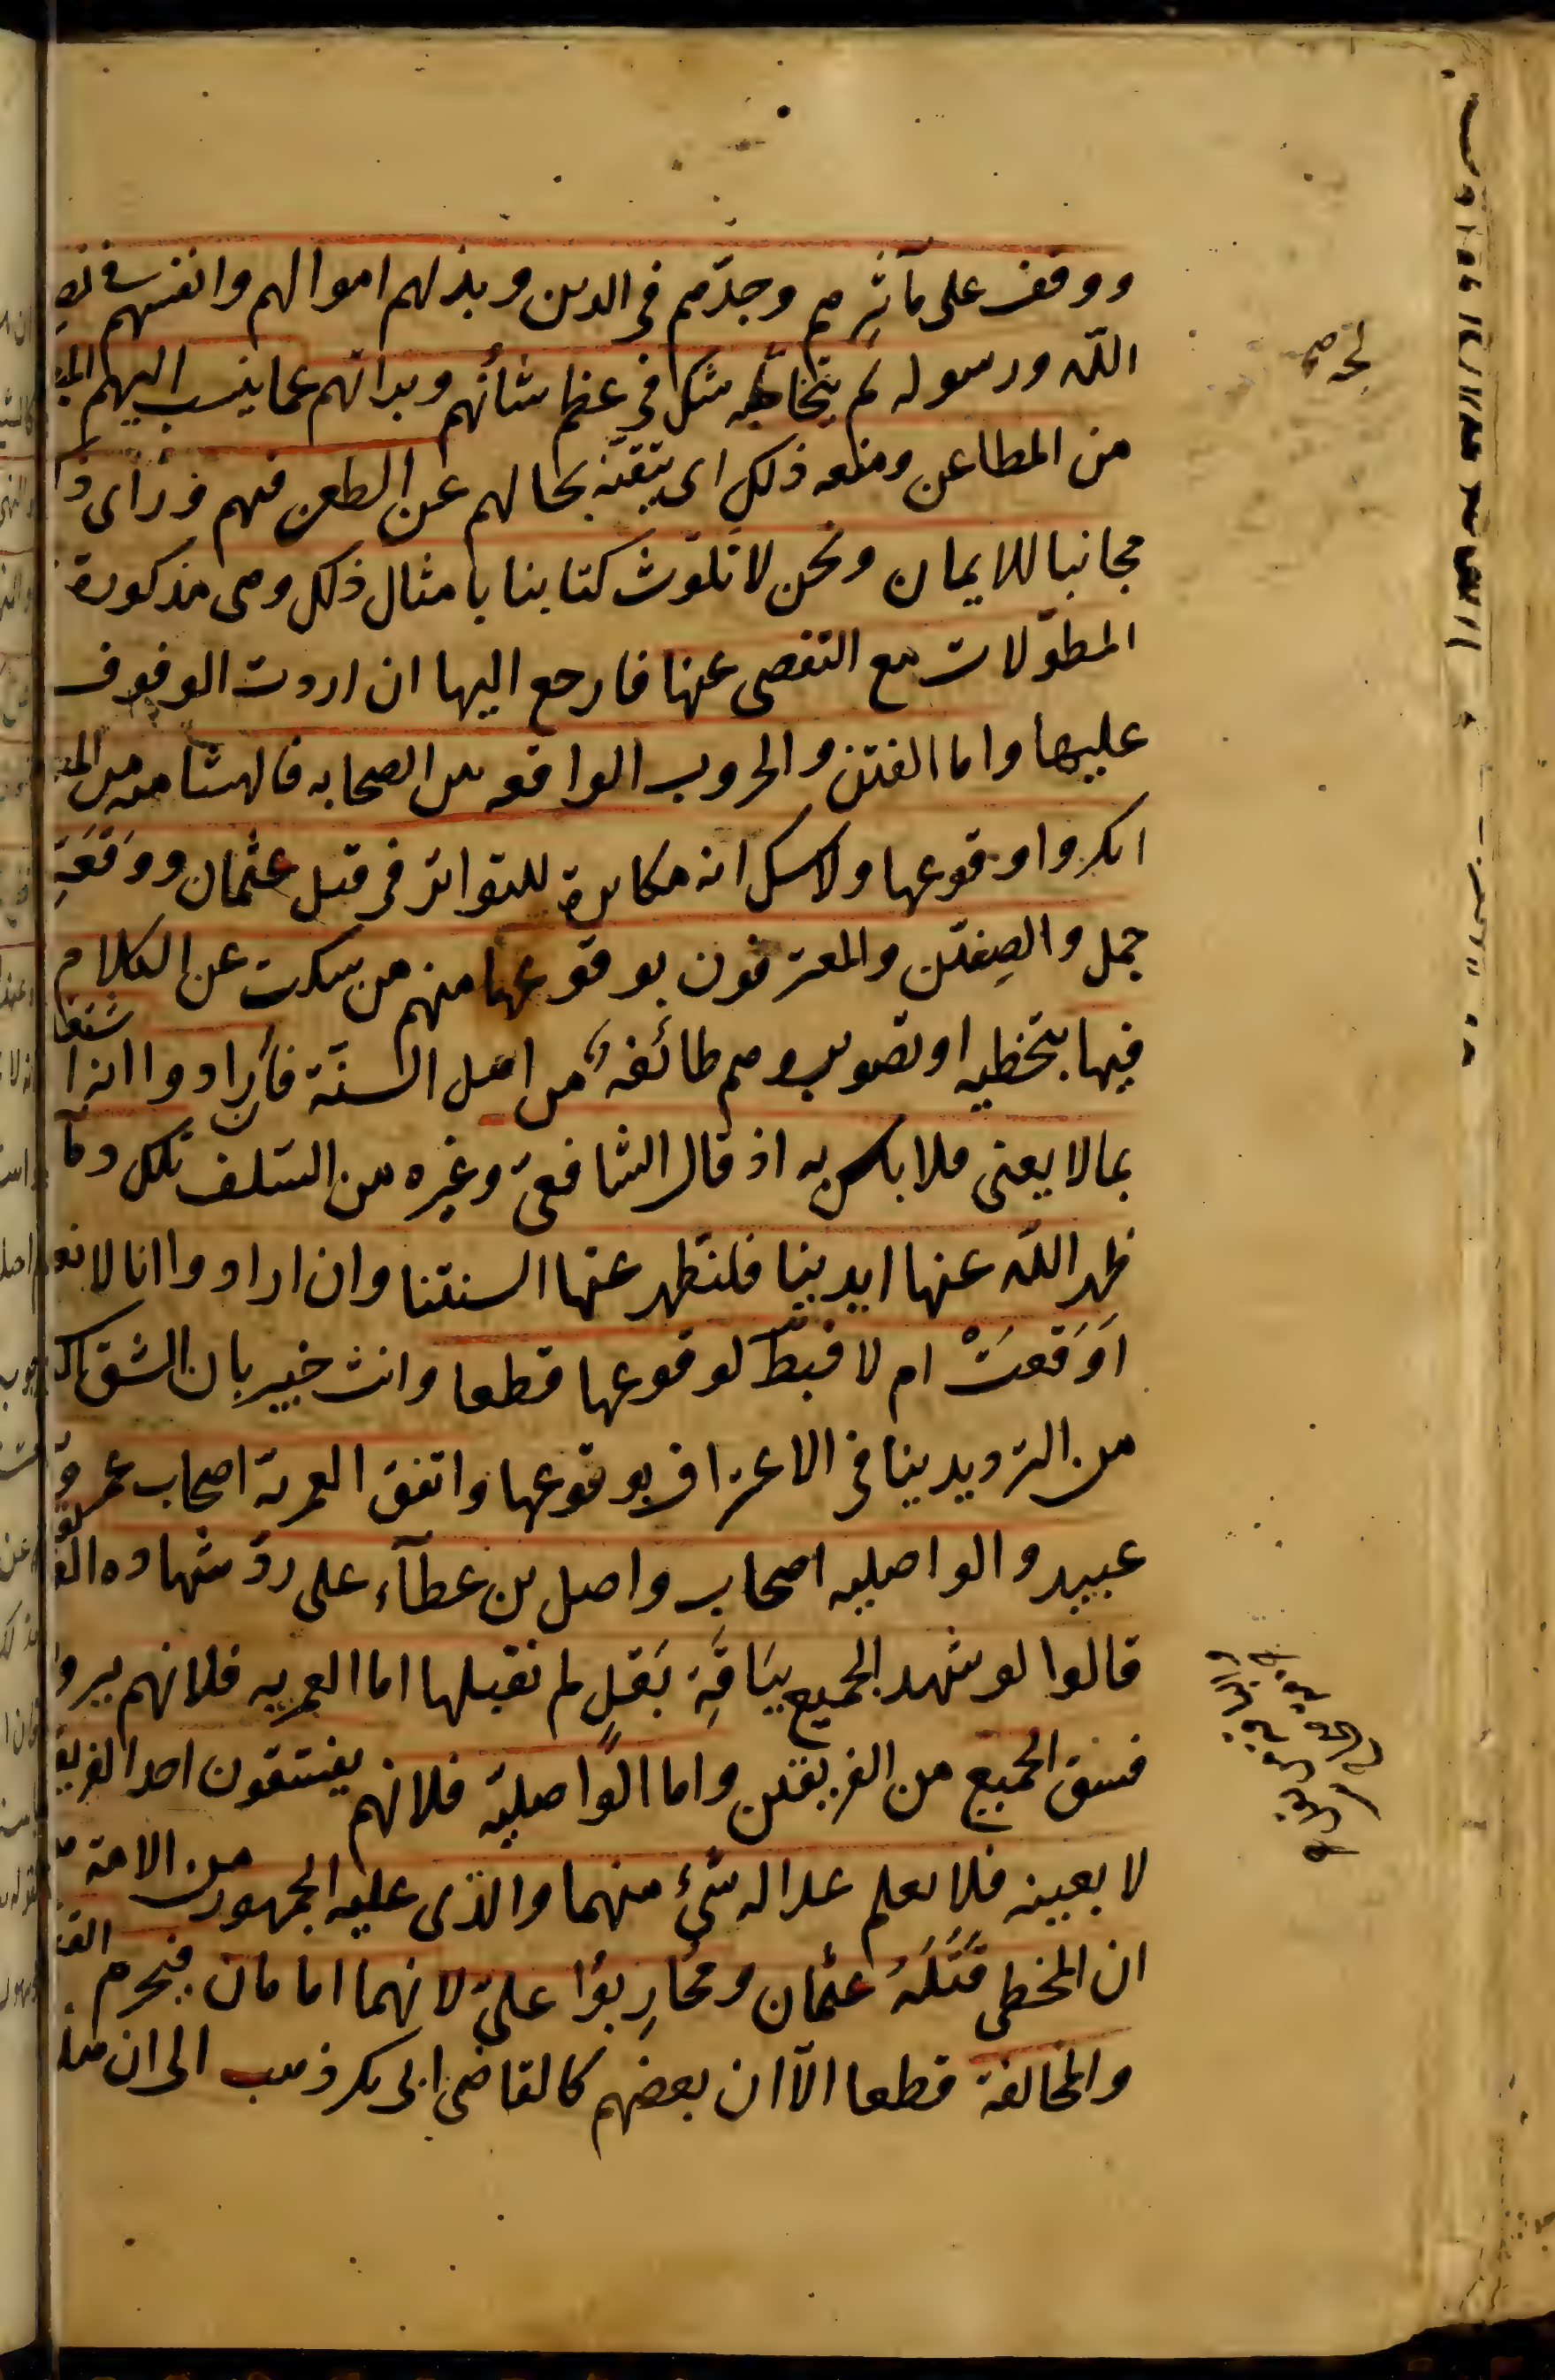 ووقف على مآثرهم وجدّهم في الدين وبذلهم اموالهم وانفسهم في نصر
الله ورسوله لم يتخالجه شك في عظم شأنهم وبرائهم عما ينسب اليهم
من المطاعن ومنعه ذلك اى تيقنه بحالهم عن الطعن فيهم فرأى
مجانبا للايمان ونحن لا نلوّث كتابنا بامثال ذلك وهى مذكورة
المطوّلات مع التفصى عنها فارجع اليها ان اردت الوقوف
عليها واما الفتن والحروب الواقعه بين الصحابه فالهشاميه من
انكروا وقوعها ولا شك انه مكابرة للتواتر فى قتل عثمان ووَقْعَةِ
جمل والصِفّين والمعترفون بوقوعها منهم من سكت عن الكلام
فيها بتخطيه او تصويب وهم طائفة من اهل السنّة فأرادوا انه اشتغال
بما لا يعنى فلا بأس به اذ قال الشافعىّ وغيره من السّلف تلك دمآ
طهر الله عنها ايدينا فلنطهر عنها السنتنا وان ارادوا انا لا نعلم
اَوَقَعَتْ ام لا فبطّ لوقوعها قطعا وانت خبير بان الشق
من الترديد ينافى الاعتراف بوقوعها واتفق العمرية اصحاب عمرو
عبيد والواصليه اصحاب واصل بن عطآء على ردّ شهاده
قالوا لو شهد الجميع بِبَاقَةِ بَقلٍ لم نقبلها اما العمريه فلانهم يروا
فسق الجميع من الفريقين واما الواصليّة فلانهم يفسقون احد الفريق
لا بعينه فلا يعلم عداله شئ منهما والذى عليه الجمهور من الامة
ان المخطى قَتَلَةُ عثمان ومحُارِبوُا علىّ لانهما امامان فيحرم القتل
والمخالفة قطعا الّا ان بعضهم كالقاضى ابى بكر ذهب الى ان هذا